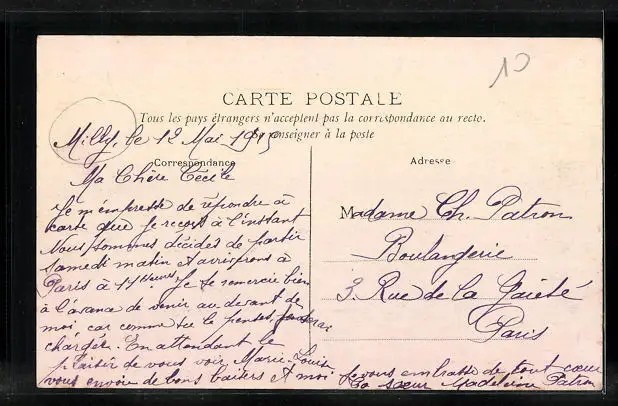 10
CARTE POSTALE
Tous les pays étrangers n'acceptent pas la correspondance au recto.
Se renseigner à la poste
Milly, le 12 Mai
Correspondance
Ma Chère Cécile
Je m'empresse de répondre à
carte que je reçois à l'instant
Nous sommes décidés de partir
samedi matin et arriverons à
Paris à 11 heures Je te remercie bien
à l'avance de venir au devant de
moi, car comme tu le penses
chargée. En attendant le
plaisir de vous voir, Marie-Louise
vous envoie de bons baisers et moi je vous embrasse de tout cœur
Ta sœur Madeleine Patron
Adresse
Madame Ch. Patron
Boulangerie
3. Rue de la Gaieté
Paris